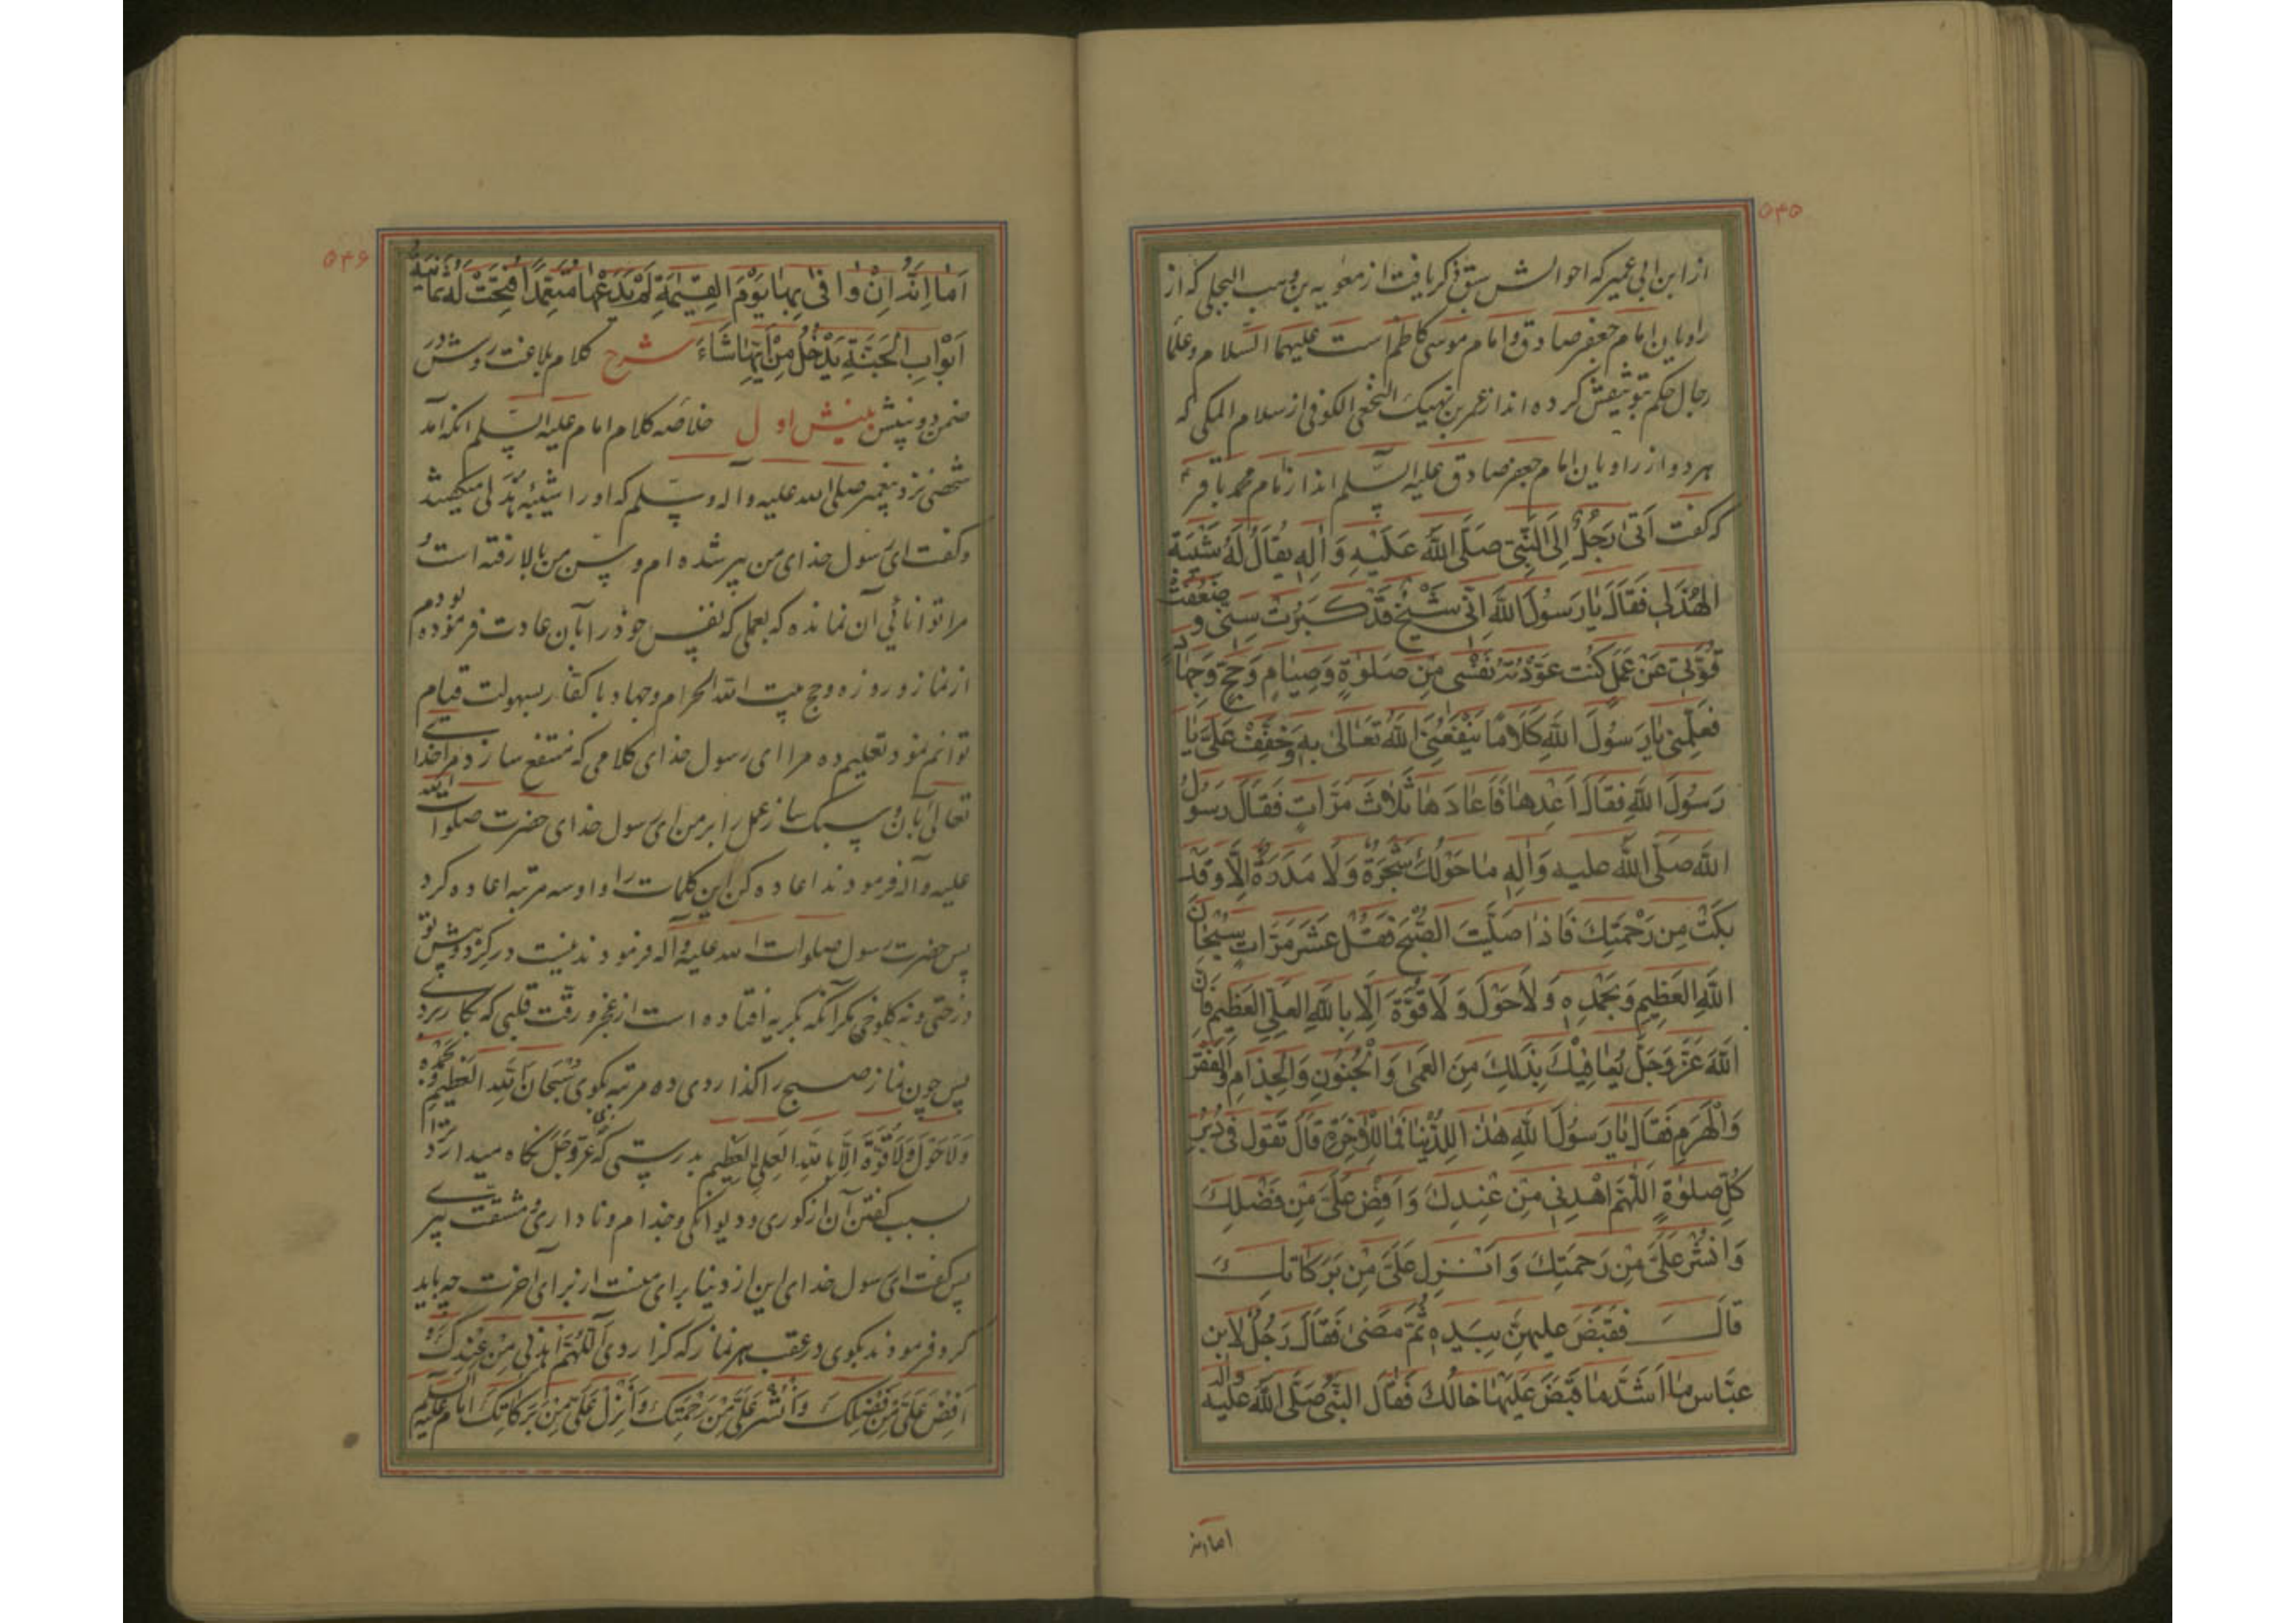 ۵۴۵
از ابن ابی عمیر که احوالش سبق ذکر یافت از معویه بن وهب البجلی که از
راویان امام جعفر صادق و امام موسی کاظم است علیهما السلام و علما
رجال حکم بتوثیقش کرده اند از عمر بن نهیک النخعی الکوفی از سلام المکی که
هر دو از راویان امام جعفر صادق علیه السّلم اند از امام محمد باقر ع
که گفت اَتیٰ رَجُلٌ اِلَی النَّبِیِّ صَلَّی اللهُ عَلَیْهِ وَاٰلِهِ یُقالُ لَهُ شَیْبَة
الهُذَلی فَقالَ یٰا رَسُولَ اللهِ اِنّی شَیْخٌ قَدْ کَبُرَتْ سِنّی وَ ضَعُفَتْ
قُوَّتی عَنْ عَمَلٍ کُنْت عَوَّدْتُهُ نَفْسی مِنْ صَلوٰةٍ وَصِیٰامٍ وَحَجٍّ وَجِهٰادٍ
فَعَلِّمْنی یٰا رَسُولَ اللهِ کَلٰامًا یَنْفَعُنِیَ اللهُ تَعٰالیٰ بِهِ وَخَفِّفْ عَلَیَّ یٰا
رَسُولَ اللهِ فَقالَ اَعِدْهٰا فَاَعٰادَهٰا ثَلٰاثَ مَرّٰاتٍ فَقالَ رَسُولُ
اللهِ صَلَّی اللهُ علیه وَاٰلِهِ مٰا حَوْلَكَ شَجَرَةٌ وَلٰا مَدَرَةٌ اِلّٰا وَقَدْ
بَکَتْ مِن رَحْمَتِكَ فَاِذٰا صَلَّیْتَ الصُّبْحَ فَقُلْ عَشَرَ مَرّٰاتٍ سُبْحٰانَ
اللهِ العَظِیمِ وَبِحَمْدِهِ وَلٰا حَوْلَ وَلٰا قُوَّةَ اِلّٰا بِاللهِ العَلِیِّ العَظِیمِ فَاِنَّ
اللهَ عَزَّ وَجَلَّ یُعٰافِیْكَ بِذٰلِكَ مِنَ العَمیٰ وَالْجُنُونِ وَالْجُذٰامِ وَالْفَقْرِ
وَالْهَرَمِ فَقالَ یٰا رَسُولَ اللهِ هٰذا لِلدُّنْیٰا فَمٰا لِلْاٰخِرَةِ قالَ تَقولُ فی دُبُرِ
کُلِّ صَلوٰةٍ اَللّٰهُمَّ اهْدِنی مِنْ عِنْدِكَ وَاَفِضْ عَلَیَّ مِنْ فَضْلِكَ
وَانْشُرْ عَلَیَّ مِنْ رَحمَتِكَ وَاَنْزِل عَلَیَّ مِنْ بَرَکٰاتِكَ
قالَ فَقَبَضَ علیهِنَّ بِیَدِهِ ثُمَّ مَضیٰ فَقالَ رَجُلٌ لِابن
عبّاس مٰا اَشَدَّ مٰا قَبَضَ عَلَیْهٰا خالُكَ فَقٰالَ النَّبیُّ صَلَّی اللهُ علیه وآله
اما انه
۵۴۶
اَمٰا اِنَّهُ اِنْ وٰافیٰ بِهٰا یَوْمَ القِیٰمَةِ لَمْ یَدَعْهٰا مُتَعَمِّدًا فُتِحَتْ لَهُ ثَمٰانِیَةُ
اَبْوٰابِ الجَنَّةِ یَدْخُلُ مِنْ اَیِّهٰا شٰاءَ شرح کلام بلاغت روش در
ضمن دو بینش بینش اول خلاصه کلام امام علیه السّلم آنکه آمد
شخصی نزد پیغمبر صلی الله علیه و آله و سلّم که او را شیبهٔ هذلی میگفتند
و گفت ای رسول خدای من پیر شده ام و سن من بالا رفته است و
مرا توانائی آن نمانده که بعملی که نفس خود را بآن عادت فرموده بودم
از نماز و روزه و حج بیت الله الحرام و جهاد با کفار بسهولت قیام
توانم نمود تعلیم ده مرا ای رسول خدای کلامی که منتفع سازد مرا خدای
تعالی بآن و سبک ساز عمل را بر من ای رسول خدای حضرت صلوات الله
علیه و آله فرمودند اعاده کن این کلمات را و او سه مرتبه اعاده کرد
پس حضرت رسول صلوات الله علیه و آله فرمودند نیست در گرد و پیش تو
درختی و نه کلوخی مگر آنکه بگریه افتاده است از عجز و رقت قلبی که بکار بردی
پس چون نماز صبح را گذاردی ده مرتبه بگوی سُبْحَانَ اللهِ العَظِیمِ وَبِحَمْدِهِ
وَلَا حَوْلَ وَلَا قُوَّةَ اِلَّا بِاللهِ العَلِیِ العَظِیمِ بدرستی که خدای عَزَّ وَجَلَّ نگاه میدارد ترا
بسبب گفتن آن از کوری و دیوانگی و جذام و ناداری و مشقت پیری
پس گفت ای رسول خدای این از دنیا برای منست از برای آخرت چه باید
کرد فرمودند بگوی در عقب هر نماز که گذاردی اَللّٰهُمَّ اهْدِنِی مِنْ عِنْدِكَ وَ
اَفِضْ عَلَیَّ مِنْ فَضْلِكَ وَانْشُرْ عَلَیَّ مِنْ رَحْمَتِكَ وَاَنْزِلْ عَلَیَّ مِنْ بَرَکَاتِكَ امام علیه السلم